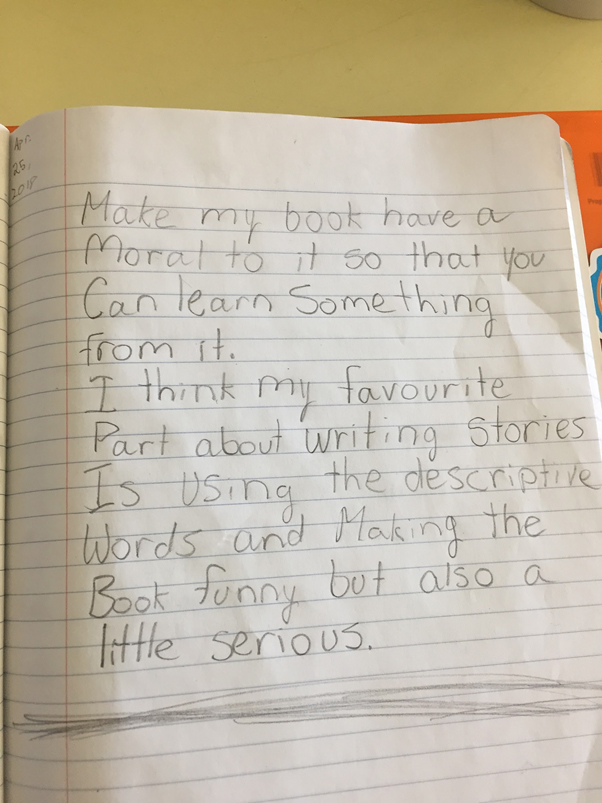 Apr.
25,
Make my book have a
Moral to it so that you
Can learn Something
from it.
I think my favourite
Part about writing Stories
Is Using the descriptive
Words and Making the
Book funny but also a
little serious.